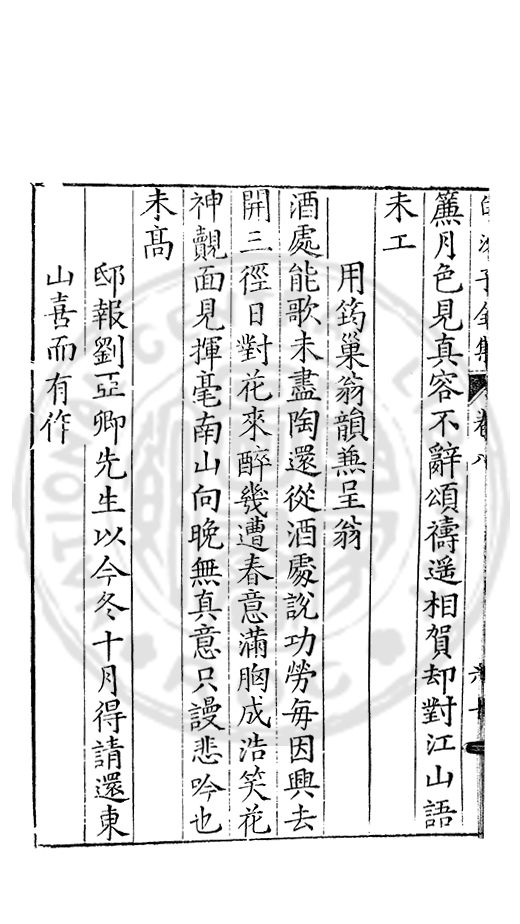 白沙子全集 卷八 六十
簾月色見真容不辭頌禱遥相賀却對江山語
未工
用筠巢翁韻無呈翁
酒處能歌未盡陶還從酒處說功勞每因興去
開三徑日對花來醉幾遭春意滿胸成浩笑花
神覿面見揮毫南山向晚無真意只謾悲吟也
未髙
邸報劉亞卿先生以今冬十月得請還東
山喜而有作